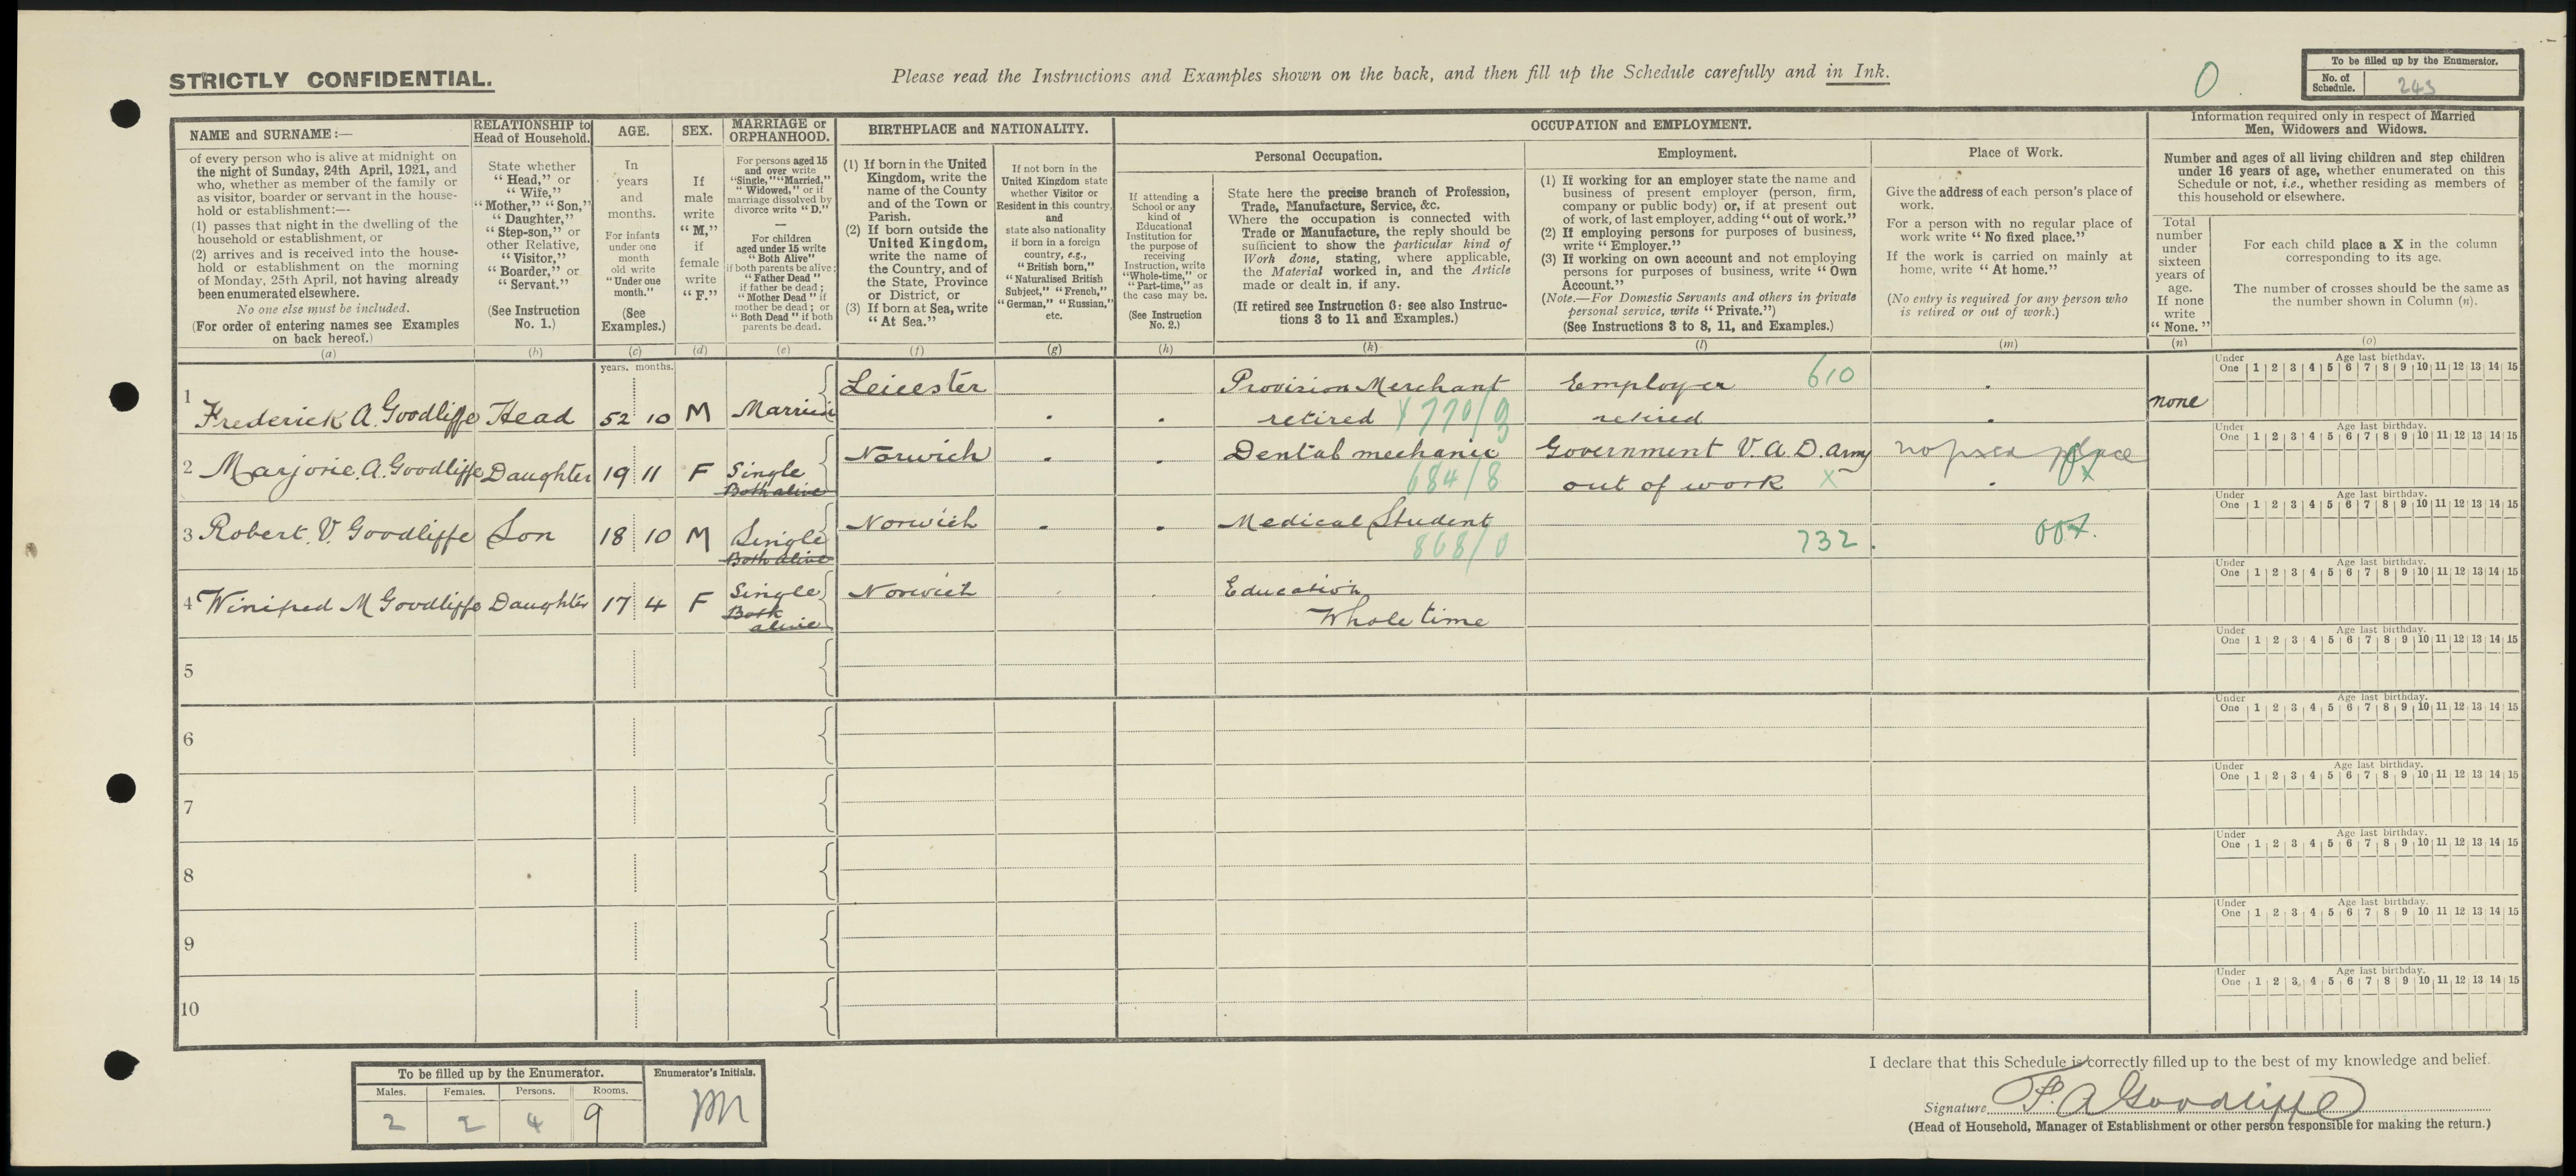 STRICTLY CONFIDENTIAL.
Please read the Instructions and Examples shown on the back, and then fill up the Schedule carefully and in Ink.
0
To be filled up by the Enumerator.
No. of Schedule. 243
NAME and SURNAME:—
of every person who is alive at midnight on
the night of Sunday, 24th April, 1921, and
who, whether as member of the family or
as visitor, boarder or servant in the house-
hold or establishment:—
(1) passes that night in the dwelling of the
household or establishment, or
(2) arrives and is received into the house-
hold or establishment on the morning
of Monday, 25th April, not having already
been enumerated elsewhere.
No one else must be included.
(For order of entering names see Examples
on back hereof.)
(a)
RELATIONSHIP to
Head of Household.
State whether
"Head," or
"Wife,"
"Mother," "Son,"
"Daughter,"
"Step-son," or
other Relative,
"Visitor,"
"Boarder," or
"Servant."
(See Instruction
No. 1.)
(b)
AGE.
In
years
and
months.
For infants
under one
month
old write
"Under one
month."
(See
Examples.)
(c)
SEX.
If
male
write
"M,"
if
female
write
"F."
(d)
MARRIAGE or
ORPHANHOOD.
For persons aged 15
and over write
"Single," "Married,"
"Widowed," or if
marriage dissolved by
divorce write "D."
—
For children
aged under 15 write
"Both Alive"
if both parents be alive;
"Father Dead"
if father be dead;
"Mother Dead" if
mother be dead; or
"Both Dead" if both
parents be dead.
(e)
BIRTHPLACE and NATIONALITY.
(1) If born in the United
Kingdom, write the
name of the County
and of the Town or
Parish.
(2) If born outside the
United Kingdom,
write the name of
the Country, and of
the State, Province
or District, or
(3) If born at Sea, write
"At Sea."
(f)
If not born in the
United Kingdom state
whether Visitor or
Resident in this country,
and
state also nationality
if born in a foreign
country, e.g.,
"British born,"
"Naturalised British
Subject," "French,"
"German," "Russian,"
etc.
(g)
OCCUPATION and EMPLOYMENT.
If attending a
School or any
kind of
Educational
Institution for
the purpose of
receiving
Instruction, write
"Whole-time," or
"Part-time," as
the case may be.
(See Instruction
No. 2.)
(h)
Personal Occupation.
State here the precise branch of Profession,
Trade, Manufacture, Service, &c.
Where the occupation is connected with
Trade or Manufacture, the reply should be
sufficient to show the particular kind of
Work done, stating, where applicable,
the Material worked in, and the Article
made or dealt in, if any.
(If retired see Instruction 6: see also Instruc-
tions 3 to 11 and Examples.)
(k)
Employment.
(1) If working for an employer state the name and
business of present employer (person, firm,
company or public body) or, if at present out
of work, of last employer, adding "out of work."
(2) If employing persons for purposes of business,
write "Employer."
(3) If working on own account and not employing
persons for purposes of business, write "Own
Account."
(Note.—For Domestic Servants and others in private
personal service, write "Private.")
(See Instructions 3 to 8, 11, and Examples.)
(l)
Place of Work.
Give the address of each person's place of
work.
For a person with no regular place of
work write "No fixed place."
If the work is carried on mainly at
home, write "At home."
(No entry is required for any person who
is retired or out of work.)
(m)
Information required only in respect of Married
Men, Widowers and Widows.
Number and ages of all living children and step children
under 16 years of age, whether enumerated on this
Schedule or not, i.e., whether residing as members of
this household or elsewhere.
Total
number
under
sixteen
years of
age.
If none
write
"None."
(n)
For each child place a X in the column
corresponding to its age.
The number of crosses should be the same as
the number shown in Column (n).
(o)
years. months.
Under One Age last birthday. 1 2 3 4 5 6 7 8 9 10 11 12 13 14 15
1 Frederick A. Goodliffe Head 52 10 M Married Leicester Provision Merchant retired Y 770/9 Employer 610 retired none
Under One Age last birthday. 1 2 3 4 5 6 7 8 9 10 11 12 13 14 15
2 Marjorie. A. Goodliffe Daughter 19 11 F Single Both alive Norwich Dental mechanic 684/8 Government V.A.D. Army out of work X no fixed place
Under One Age last birthday. 1 2 3 4 5 6 7 8 9 10 11 12 13 14 15
3 Robert. V. Goodliffe Son 18 10 M Single Both alive Norwich Medical Student 868/0 732
Under One Age last birthday. 1 2 3 4 5 6 7 8 9 10 11 12 13 14 15
4 Winifred M Goodliffe Daughter 17 4 F Single Both alive Norwich Education Whole time
Under One Age last birthday. 1 2 3 4 5 6 7 8 9 10 11 12 13 14 15
5
Under One Age last birthday. 1 2 3 4 5 6 7 8 9 10 11 12 13 14 15
6
Under One Age last birthday. 1 2 3 4 5 6 7 8 9 10 11 12 13 14 15
7
Under One Age last birthday. 1 2 3 4 5 6 7 8 9 10 11 12 13 14 15
8
Under One Age last birthday. 1 2 3 4 5 6 7 8 9 10 11 12 13 14 15
9
Under One Age last birthday. 1 2 3 4 5 6 7 8 9 10 11 12 13 14 15
10
To be filled up by the Enumerator.
Males. Females. Persons. Rooms.
2 2 4 9
Enumerator's Initials.
I declare that this Schedule is correctly filled up to the best of my knowledge and belief.
Signature F. A Goodliffe
(Head of Household, Manager of Establishment or other person responsible for making the return.)